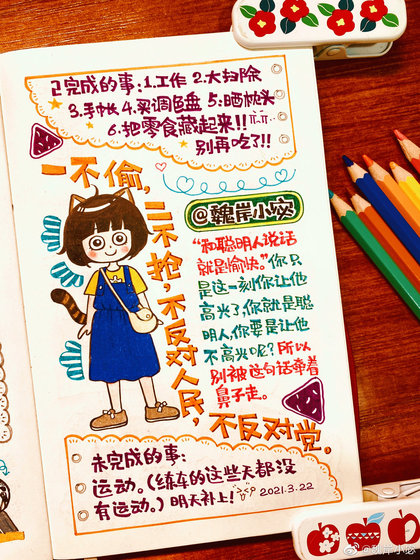 已完成的事:1.工作 2.大扫除
3.手帐 4.买调色盘 5.晒枕头
6.把零食藏起来!!
别再吃了!!
一不偷,二不抢,不反对人民,不反对党。
@魏岸小姣
“和聪明人说话
就是愉快。”你只
是这一刻你让他
高光了,你就是聪
明人,你要是让他
不高光呢?所以
别被这句话牵着
鼻子走。
未完成的事:
运动。(结车的这些天都没
有运动。)明天补上!
2021.3.22